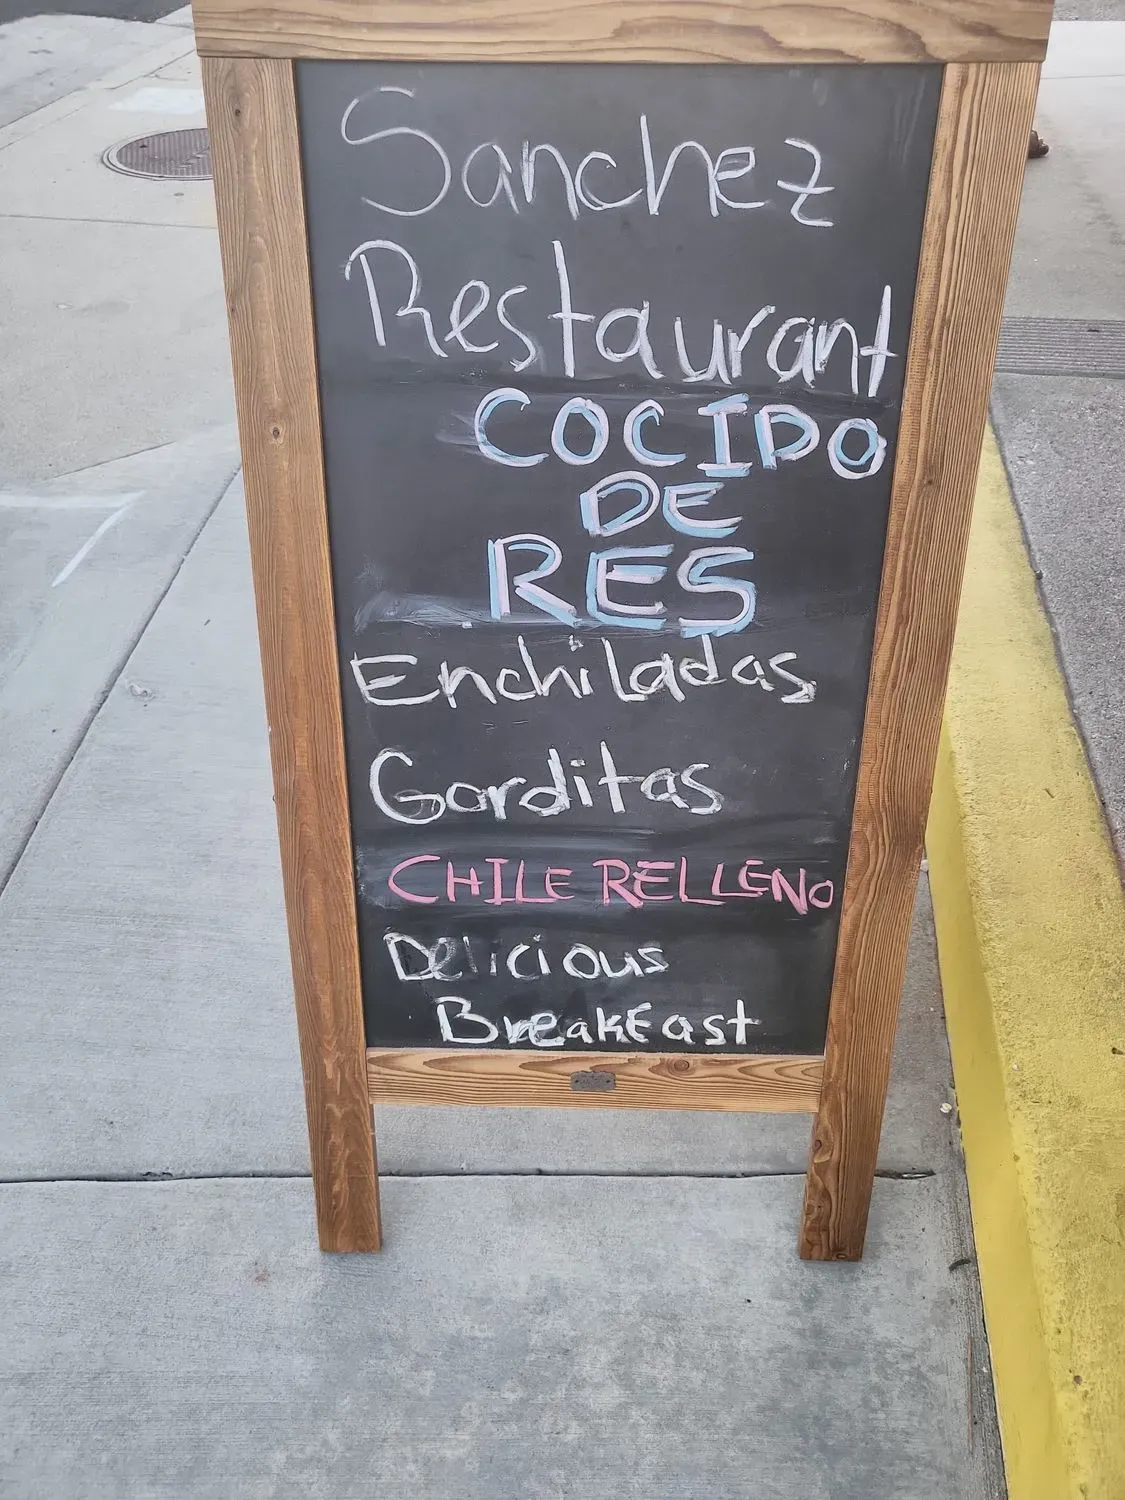 Sanchez
Restaurant
COCIDO
DE
RES
Enchiladas
Gorditas
CHILE RELLENO
Delicious
BreakFast